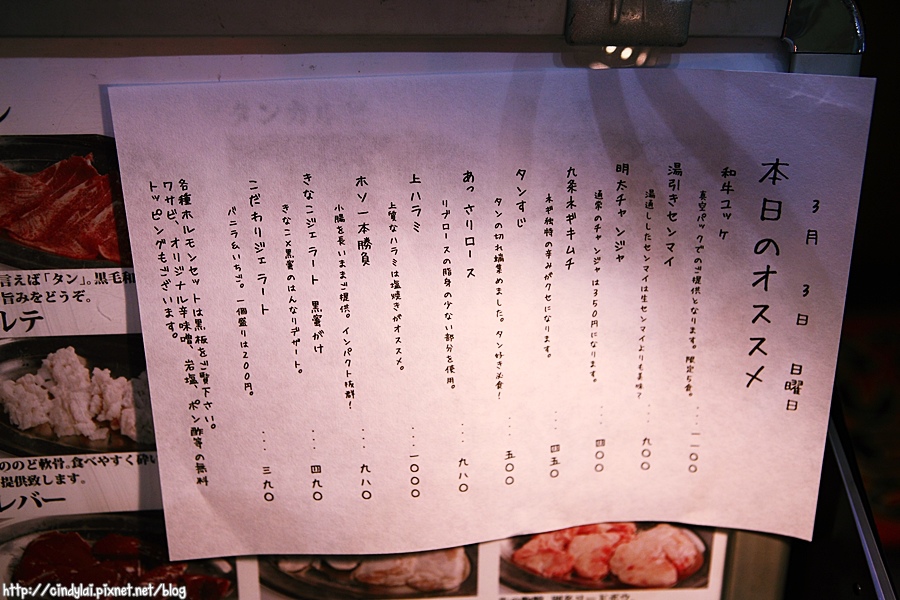 3月3日 日曜日
本日のオススメ
和牛ユッケ ...一一〇〇
真空パックでのご提供となります。限定5食。
湯引きセンマイ ...九〇〇
湯通ししたセンマイは生センマイよりも美味?
明太チャンジャ ...四〇〇
通常のチャンジャは350円になります。
九条ネギキムチ ...四五〇
ネギ独特の辛みがクセになります。
タンすじ ...五〇〇
タンの切れ端集めました。タン好き必食!
あっさりロース ...九八〇
リブロースの脂身の少ない部分を使用。
上ハラミ ...一〇〇〇
上質なハラミは塩焼きがオススメ。
ホソ一本勝負 ...九八〇
小腸を長いままご提供。インパクト抜群!
きなこジェラート 黒蜜がけ ...四九〇
きなこ×黒蜜のはんなりデザート。
こだわりジェラート ...三九〇
バニラ&いちご。一個盛りは200円。
各種ホルモンセットは黒板をご覧下さい。
ワサビ、オリジナル辛味噌、岩塩、ポン酢等の無料
トッピングもございます。
言えば「タン」。黒毛和
旨みをどうぞ。
ルテ
ののど軟骨。食べやすく砕い
提供致します。
レバー
http://cindylai.pixnet.net/blog